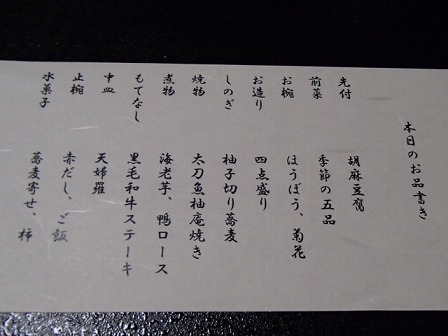 本日のお品書き
先付 胡麻豆腐
前菜 季節の五品
お椀 ほうぼう、菊花
お造り 四点盛り
しのぎ 柚子切り蕎麦
焼物 太刀魚柚庵焼き
煮物 海老芋、鴨ロース
もてなし 黒毛和牛ステーキ
中皿 天婦羅
止椀 赤だし、ご飯
水菓子 蕎麦寄せ、柿